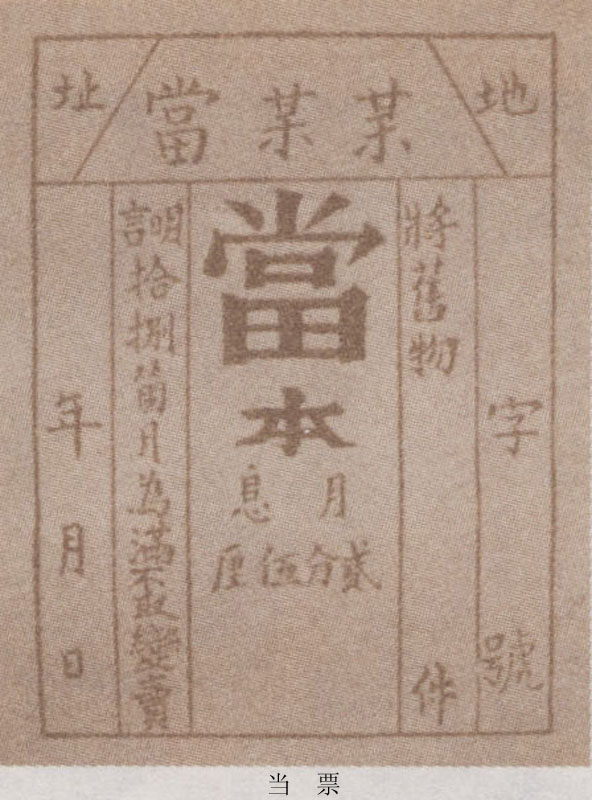 地址
某某當
字號
將舊物件
當本
月息
貳分伍厘
言明拾捌箇月為滿不取變賣
年月日
当票